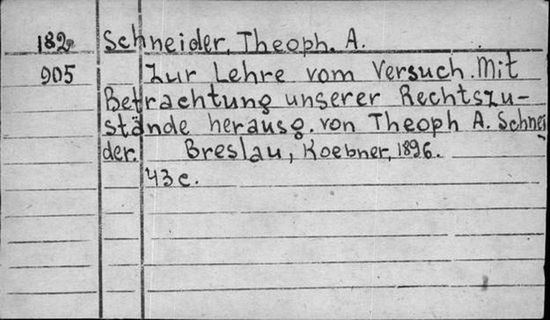 182 Schneider, Theoph. A.
905 Zur Lehre vom Versuch. Mit
Betrachtung unserer Rechtszu-
stände herausg. von Theoph A. Schnei
der. Breslau, Koebner, 1896.
43 c.